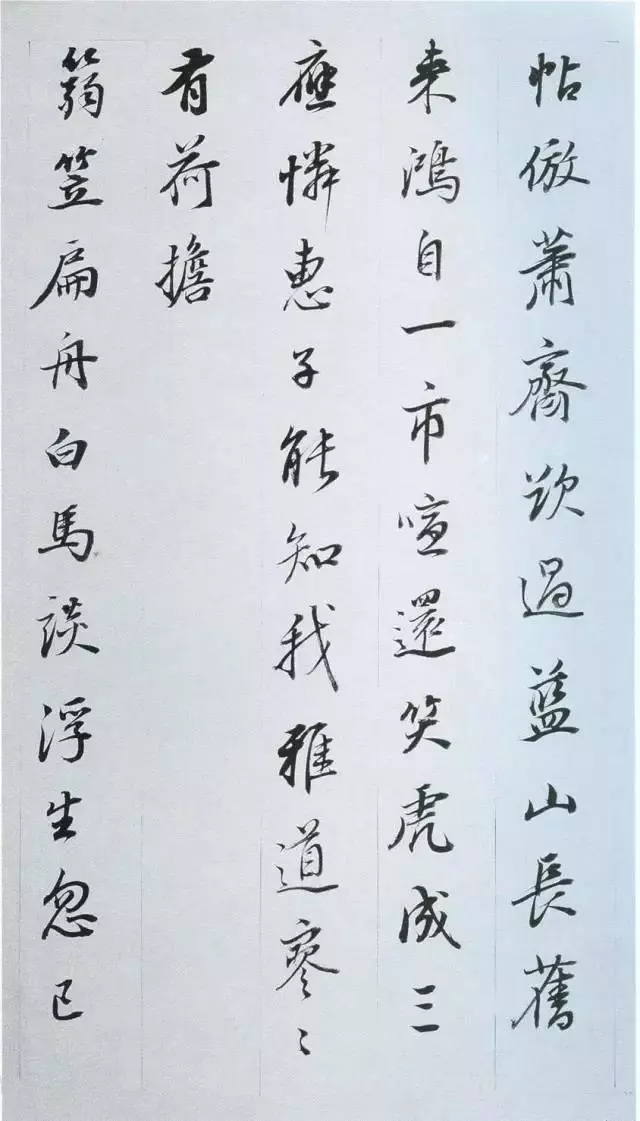 帖倣蕭齋欲過藍山長舊
來鴻自一市喧還笑虎成三
應憐惠子能知我雅道寥〻
有荷擔
篛笠扁舟白馬談浮生忽已